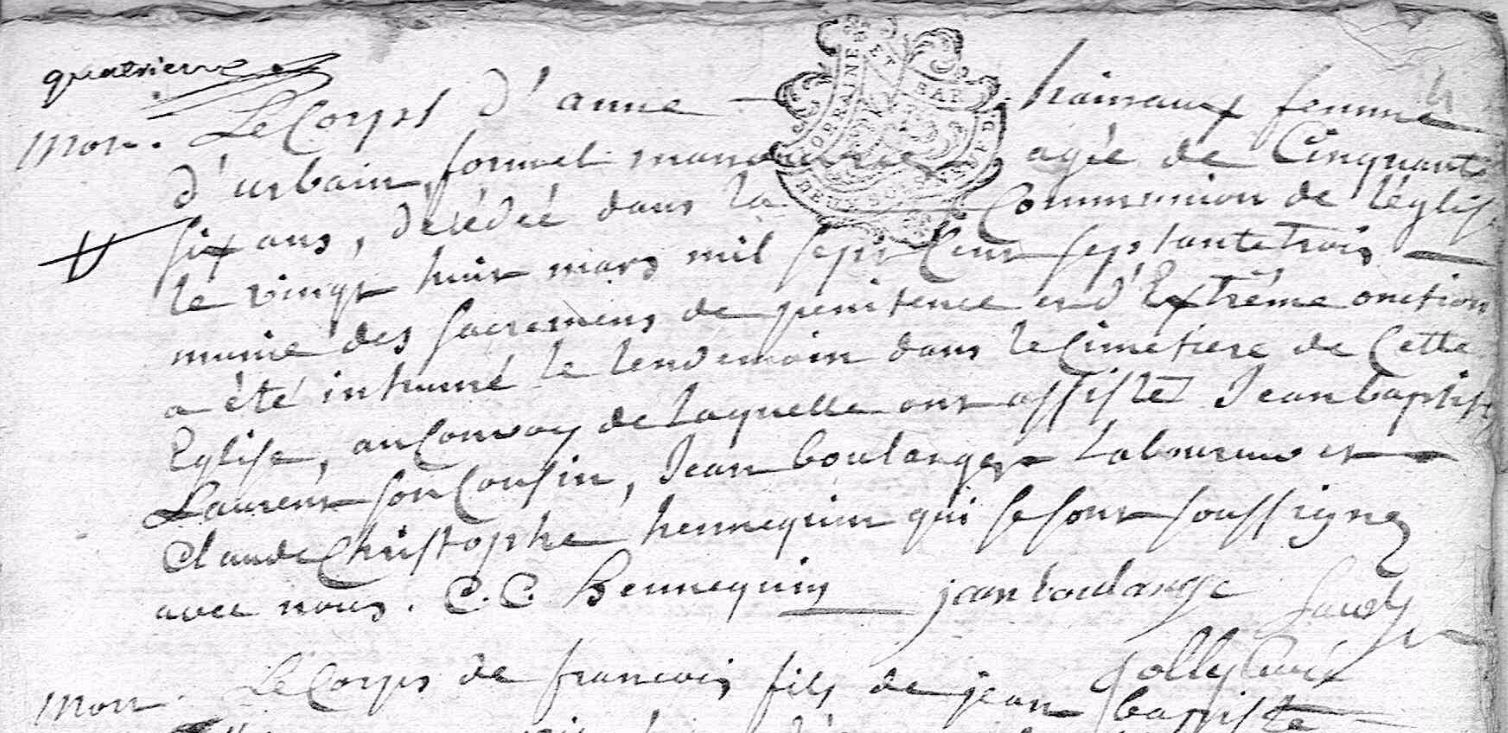 quatrieme
LORRAINE ET BAR
DEUX SOLS
mort. Le Corps d'anne — hainaux femme
d'urbain formel manoeuvre agée de Cinquante
six ans, décédée dans la Communion de l'églis
le vingt huit mars mil sept Cent septante trois —
munie des sacremens de penitence et d'Extrême onction
a été inhumé le lendemain dans le Cimetiere de Cette
Eglise, au Convoy de laquelle ont assisté Jean baptist
Laurent son Cousin, Jean boulanger Laboureur et —
Claude Christophe hennequin qui se sont soussignez
avec nous. C. C. Hennequin jean boulange
Jolly Curé
mort. Le Corps de francois fils de jean baptiste